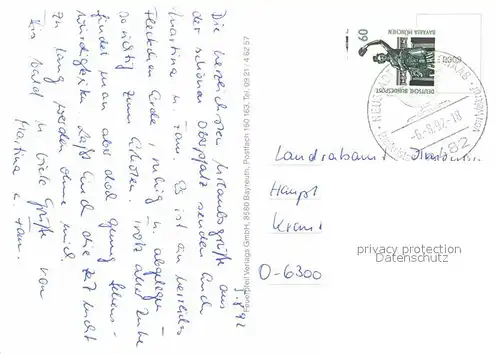 Die herzlichsten Urlaubsgrüße aus
der schönen Oberpfalz senden Euch
Martina u. Fam. Es ist ein herrliches
Fleckchen Erde, ruhig u. abgelegen –
so richtig zum Erholen. Trotz aller Ruhe
findet man aber doch genug Sehens-
würdigkeiten. Laßt Euch die Zeit nicht
zu lang werden ohne mich
Bis bald u. viele Grüße von
Martina u. Fam.
5.8.92
Verlags GmbH, 8580 Bayreuth, Postfach 160 163, Tel. 09 21 / 4 62 57
60
BAVARIA MÜNCHEN
DEUTSCHE BUNDESPOST
-6.8.92-18
Landratsamt
Haupt
D-6300
privacy protection
Datenschutz